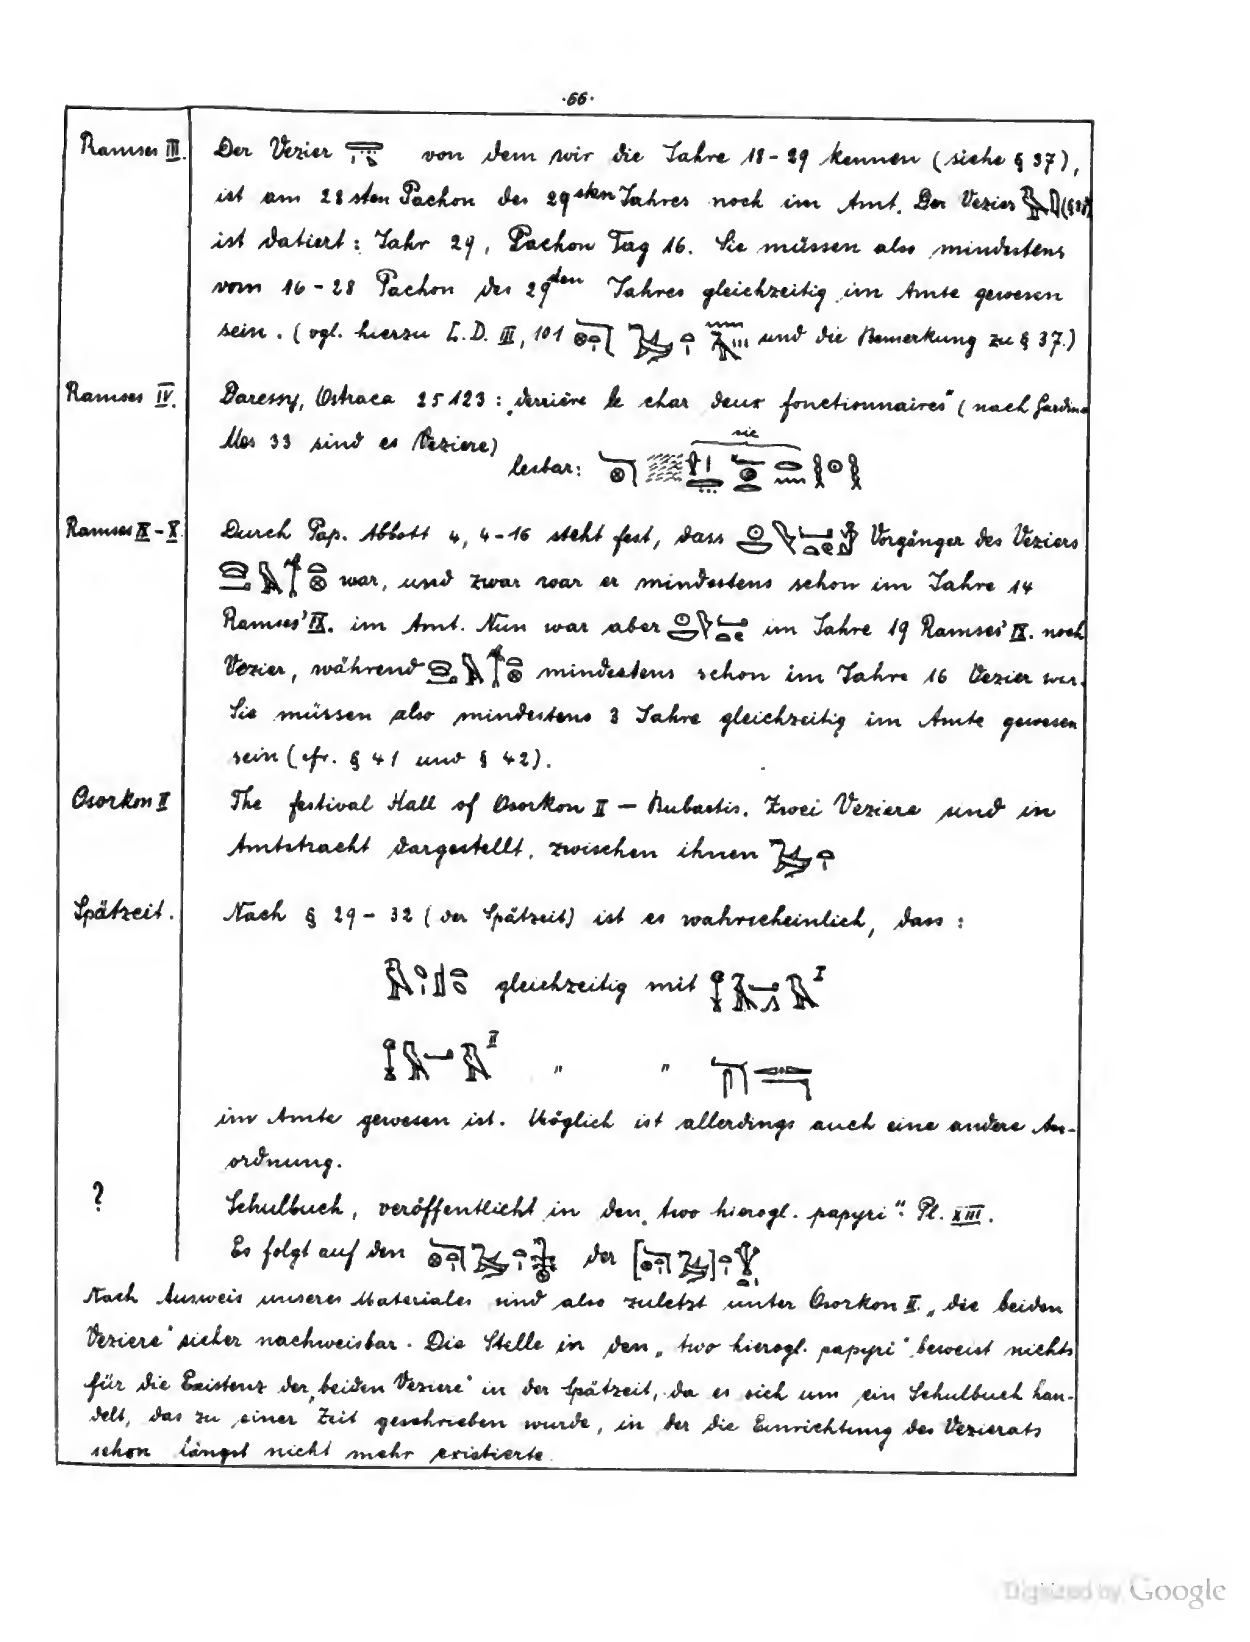 ·66·
Ramses III. Der Vezier von dem wir die Jahre 18-29 kennen (siehe § 37),
ist am 28sten Pachon des 29sten Jahres noch im Amt. Der Vezier
ist datiert: Jahr 29, Pachon Tag 16. Sie müssen also mindestens
vom 16-28 Pachon des 29sten Jahres gleichzeitig im Amte gewesen
sein. (vgl. hierzu L.D. III, 101 und die Bemerkung zu § 37.)
Ramses IV. Daressy, Ostraca 25123: „derrière le char deux fonctionnaires" (nach Gardiner
Mes 33 sind es Veziere)
sic
lesbar:
Ramses IX-X. Durch Pap. Abbott 4, 4-16 steht fest, dass Vorgänger des Veziers
war, und zwar war er mindestens schon im Jahre 14
Ramses' IX. im Amt. Nun war aber im Jahre 19 Ramses' IX. noch
Vezier, während mindestens schon im Jahre 16 Vezier war.
Sie müssen also mindestens 3 Jahre gleichzeitig im Amte gewesen
sein (cfr. § 41 und § 42).
Osorkon II The festival Hall of Osorkon II — Bubastis. Zwei Veziere und in
Amtstracht dargestellt, zwischen ihnen
Spätzeit. Nach § 29-32 (der Spätzeit) ist es wahrscheinlich, dass:
gleichzeitig mit I
II " "
im Amte gewesen ist. Möglich ist allerdings auch eine andere An-
ordnung.
? Schulbuch, veröffentlicht in den „two hierogl. papyri". Pl. XIII.
Es folgt auf den der
Nach Ausweis unseres Materiales sind also zuletzt unter Osorkon II. „die beiden
Veziere" sicher nachweisbar. Die Stelle in den „two hierogl. papyri" beweist nichts
für die Existenz der „beiden Veziere" in der Spätzeit, da es sich um ein Schulbuch han-
delt, das zu einer Zeit geschrieben wurde, in der die Einrichtung des Vezierats
schon längst nicht mehr existierte.
Digitized by Google